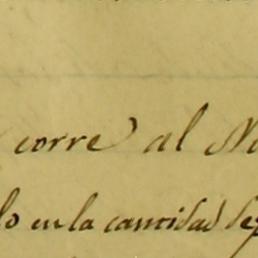 corre al
lo en la cantidad de